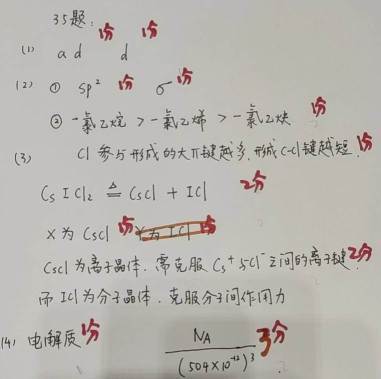 35题:
(1) a d 1分 d 1分
(2) ① sp² 1分 σ 1分
② 一氯乙烷 > 一氯乙烯 > 一氯乙炔 1分
(3) Cl 参与形成的大π键越多,形成C-Cl键越短. 1分
CsICl₂ ≜ CsCl + ICl 2分
X为 CsCl 1分 Y为 ICl 1分
CsCl为离子晶体.需克服Cs⁺与Cl⁻之间的离子键. 2分
而ICl为分子晶体.克服分子间作用力
(4) 电解质 1分 N_A/(504×10⁻¹²)³ 3分